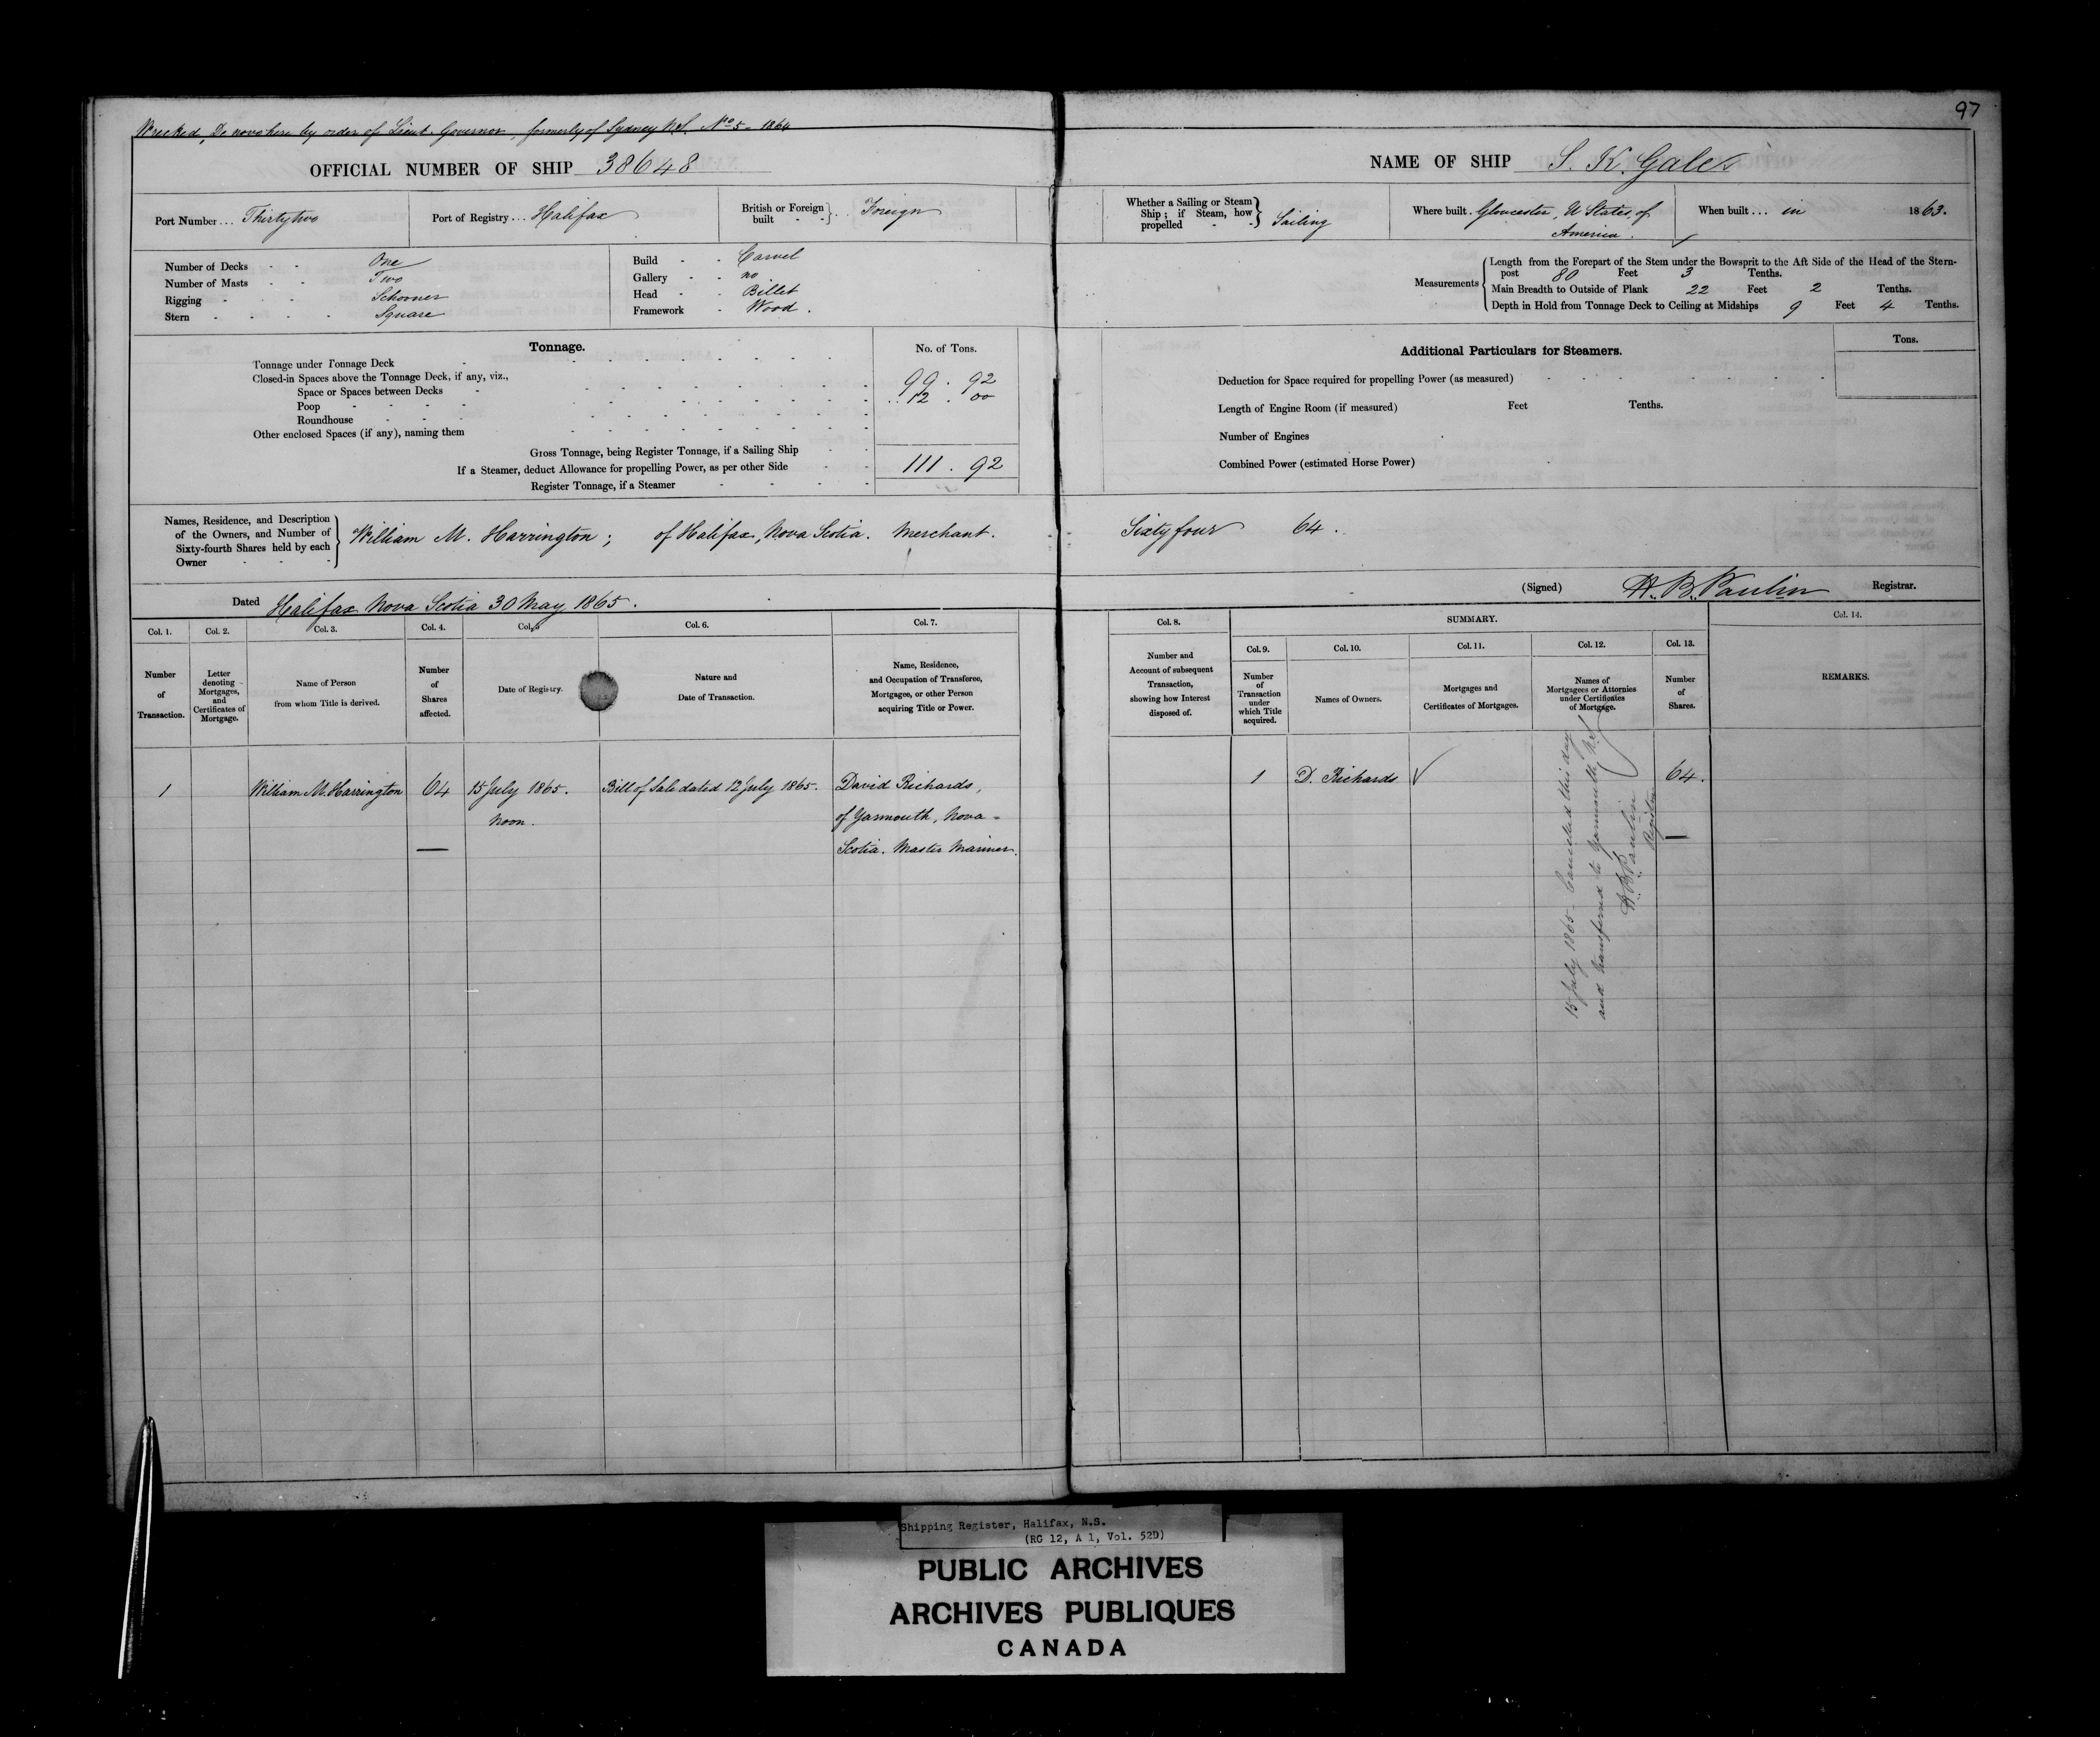 97
Wrecked, De novo here by order of Lieut. Governor, formerly of Sydney N.S. No 5 - 1864
OFFICIAL NUMBER OF SHIP 38648
Port Number ... Thirtytwo
Port of Registry ... Halifax
British or Foreign built - - } ... Foreign
Number of Decks - - One
Number of Masts - - Two
Rigging - - - - Schooner
Stern - - - - Square
Build - - Carvel
Gallery - - no
Head - - Billet
Framework - Wood.
Tonnage.
No. of Tons.
Tonnage under Tonnage Deck
Closed-in Spaces above the Tonnage Deck, if any, viz.,
99 . 92
Space or Spaces between Decks
12 . 00
Poop
Roundhouse
Other enclosed Spaces (if any), naming them
Gross Tonnage, being Register Tonnage, if a Sailing Ship
If a Steamer, deduct Allowance for propelling Power, as per other Side
111 . 92
Register Tonnage, if a Steamer
Names, Residence, and Description
of the Owners, and Number of
Sixty-fourth Shares held by each
Owner
William M. Harrington; of Halifax, Nova Scotia. Merchant.
Dated Halifax Nova Scotia 30 May 1865.
Col. 1. Col. 2. Col. 3. Col. 4. Col. 5 Col. 6. Col. 7.
Number of Transaction.
Letter denoting Mortgages, and Certificates of Mortgage.
Name of Person from whom Title is derived.
Number of Shares affected.
Date of Registry.
Nature and Date of Transaction.
Name, Residence, and Occupation of Transferee, Mortgagee, or other Person acquiring Title or Power.
1 William M. Harrington 64 15 July 1865. Bill of Sale dated 12 July 1865. David Richards,
Noon. of Yarmouth, Nova =
Scotia. Master Mariner.
NAME OF SHIP S. K. Gales
Whether a Sailing or Steam Ship; if Steam, how propelled - - } Sailing
Where built. Gloucester, U States of
America.
When built ... in 1863.
Measurements
Length from the Forepart of the Stem under the Bowsprit to the Aft Side of the Head of the Stern-
post 80 Feet 3 Tenths.
Main Breadth to Outside of Plank 22 Feet 2 Tenths.
Depth in Hold from Tonnage Deck to Ceiling at Midships 9 Feet 4 Tenths.
Additional Particulars for Steamers.
Tons.
Deduction for Space required for propelling Power (as measured)
Length of Engine Room (if measured) Feet Tenths.
Number of Engines
Combined Power (estimated Horse Power)
Sixty four 64.
(Signed) H. B. Paulin Registrar.
SUMMARY.
Col. 8. Col. 9. Col. 10. Col. 11. Col. 12. Col. 13. Col. 14.
Number and Account of subsequent Transaction, showing how Interest disposed of.
Number of Transaction under which Title acquired.
Names of Owners.
Mortgages and Certificates of Mortgages.
Names of Mortgagees or Attornies under Certificates of Mortgage.
Number of Shares.
REMARKS.
1 D. Richards 64.
15 July 1865 - Cancelled this day
and transferred to Yarmouth, N.S.
H. B. Paulin
Registrar
Shipping Register, Halifax, N.S.
(RG 12, A 1, Vol. 52D)
PUBLIC ARCHIVES
ARCHIVES PUBLIQUES
CANADA